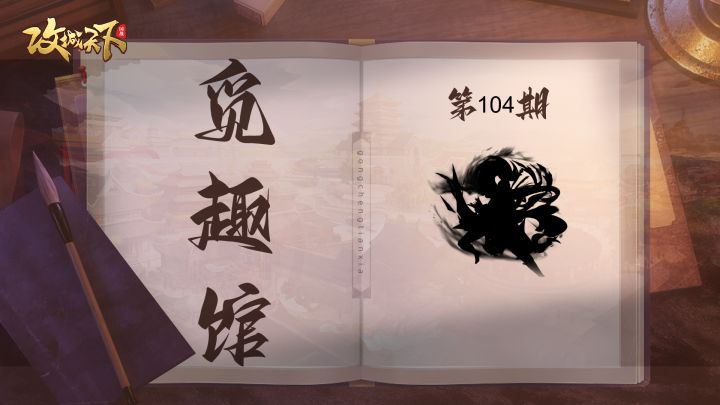 攻城天下
觅趣馆
gongchengtianxia
第104期